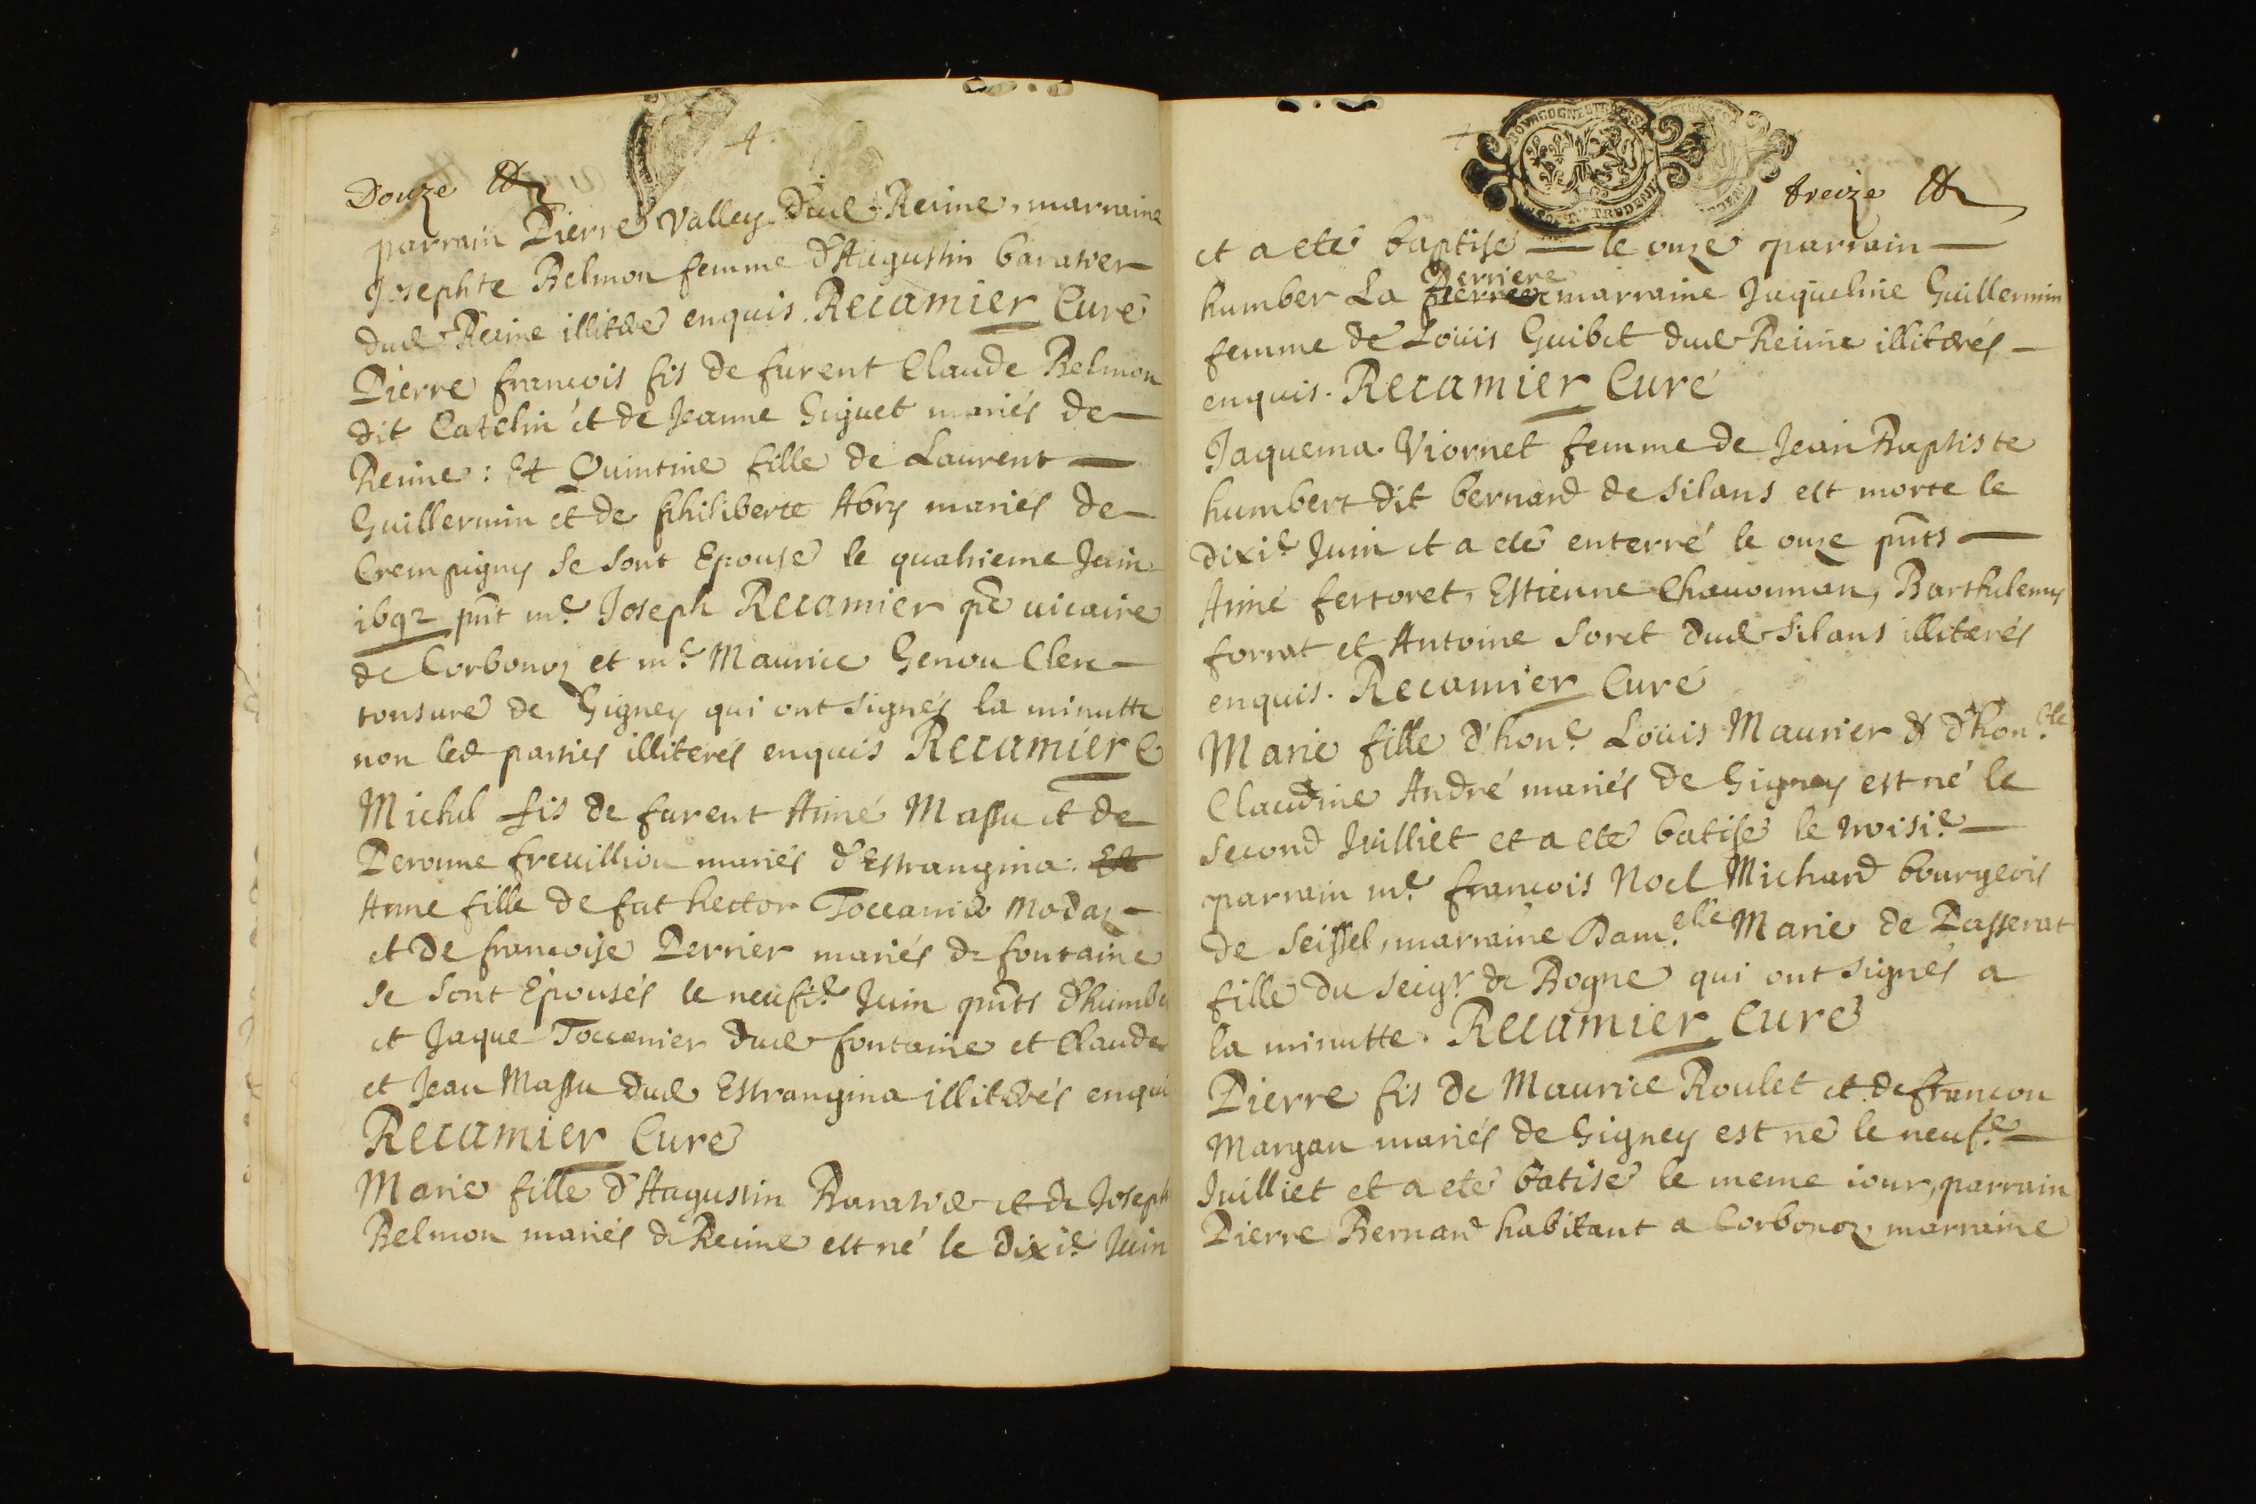 4.
Douze
parrain Pierre Valley dud Reime, marraine
Josephte Belmon femme d'Augustin baratier
dud Reime illiteré enquis. Recamier Curé
Pierre françois fis de furent Claude Belmon
dit Catelin et de Jeanne Giguet mariés de
Reime: Et Quintine fille de Laurent
Guillermin et de philiberte Abry mariés de
Crempigny se sont Epousé le quatrieme Juin
1692 pnt mre Joseph Recamier ptre vicaire
de Corbonoz et mre Maurice Genou Clerc
tonsuré de Gigney qui ont signés la minutte
non led parties illiterés enquis Recamier C
Michel fis de furent Aimé Massu et de
Peronne frevillion mariés d'Estrangina.
Anne fille de fut hector Toccanier Modaz
et de françoise Perrier mariés de fontaine
se sont Epousés le neufie Juin pnts d'humbe
et Jaque Toccanier dud fontaine et Claude
et Jean Massu dud Estrangina illiterés enqui
Recamier Curé
Marie fille d'Augustin Baratier et de Joseph
Belmon mariés de Reime est né le dixie Juin
BOVRGOGNE
treize
et a eté baptisé le onze parrain
Perriere
humber La marraine Jaqueline Guillermin
femme de Loüis Guibet dud Reime illiterés
enquis. Recamier Curé
Jaquema Viornet femme de Jean Baptiste
humbert dit bernard de silans est morte le
dixie Juin et a eté enterré le onze pnts
Aimé fertoret, Estienne Chavonnan, Barthelemy
forrat et Antoine Soret dud Silans illiterés
enquis. Recamier Curé
Marie fille d'hone Loüis Maurier & d'honble
Claudine André mariés de Gigney est né le
second Juilliet et a eté batisé le troisie
parrain mre françois Noel Michard bourgeois
de Seissel, marraine Damelle Marie de Passerat
fille du seigr de Bogne qui ont signés a
la minutte. Recamier Curé
Pierre fis de Maurice Roulet et de françon
Margan mariés de Gigney est né le neufe
Juilliet et a eté batisé le meme iour, parrain
Pierre Bernard habitant a Corbonoz, marraine